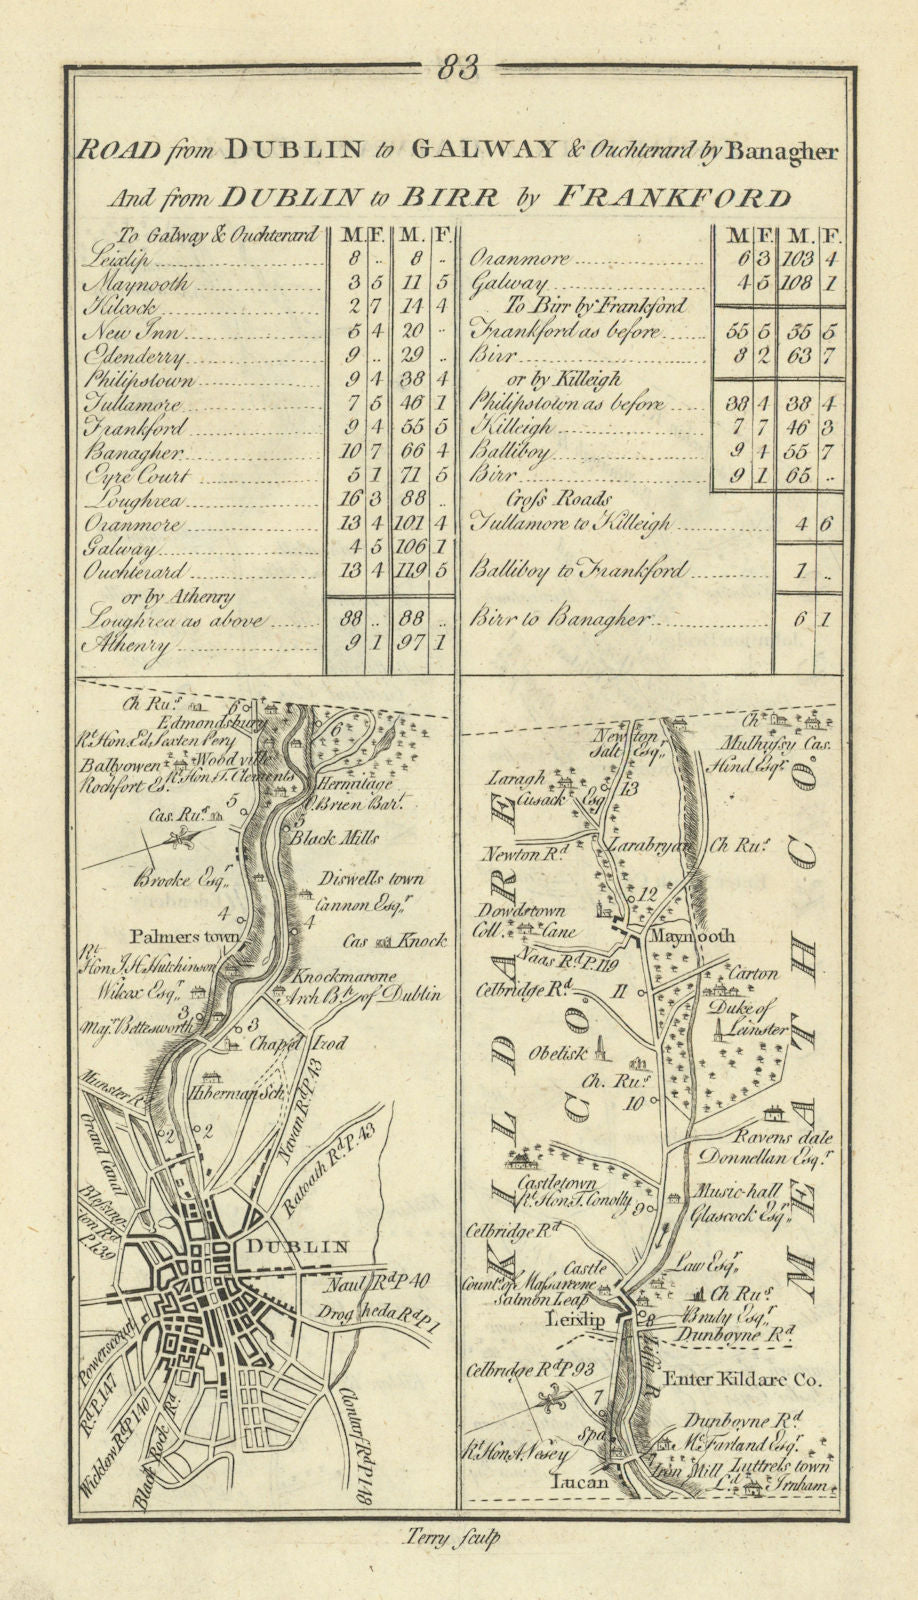 83
ROAD from DUBLIN to GALWAY & Ouchterard by Banagher
And from DUBLIN to BIRR by FRANKFORD
To Galway & Ouchterard M. F. M. F.
Leixlip 8 .. 8 ..
Maynooth 3 5 11 5
Kilcock 2 7 14 4
New Inn 5 4 20 ..
Edenderry 9 .. 29 ..
Philipstown 9 4 38 4
Tullamore 7 5 46 1
Frankford 9 4 55 5
Banagher 10 7 66 4
Eyre Court 5 1 71 5
Loughrea 16 3 88 ..
Oranmore 13 4 101 4
Galway 4 5 106 1
Ouchterard 13 4 119 5
or by Athenry
Loughrea as above 88 .. 88 ..
Athenry 9 1 97 1
M F. M. F.
Oranmore 6 3 103 4
Galway 4 5 108 1
To Birr by Frankford
Frankford as before 55 5 35 5
Birr 8 2 63 7
or by Killeigh
Philipstown as before 38 4 38 4
Killeigh 7 7 46 3
Balliboy 9 4 55 7
Birr 9 1 65 ..
Cross Roads
Tullamore to Killeigh 4 6
Balliboy to Frankford 1 ..
Birr to Banagher 6 1
Ch Rus. 6
Edmondsbury
Rt. Hon. Ed. Sexten Pery 6
Ballyowen Woodvill
Rochfort Es. Rt. Hon. T. Clements
Hermitage
O'Brien Bart.
5
Cas. Rus. 5
Black Mills
Brooke Esqr.
Diswells town
Cannon Esqr.
4 4
Palmers town Cas Knock
Rt.
Hon J. H. Hutchinson
Knockmarone
Wilcox Esqr. Arch Bp. of Dublin
3
Majr. Bettesworth 3
Chapel Izod
Hibernian Sch.
Navan Rd P. 43
Munster R
2 2
Grand Canal
Ratoath Rd P. 43
Blessing
ton Rd
P. 139
DUBLIN
Naul Rd P 40
Drogheda Rd P 1
Powerscourt
Rd P. 147
Wicklow Rd P 140
Black Rock Rd
Clontarf Rd P 148
Newtown
Salt Esqr.
Ch
Mulhussy Cas.
Hind Esqr.
Laragh
Cusack Esq 13
Newton Rd
Larabryan Ch Rus.
12
Dowdstown
Coll. Cane
Maynooth
Naas Rd P. 119
Carton
Celbridge Rd. 11
Duke of
Leinster
Obelisk
Ch. Rus.
10
Ravensdale
Donnellan Esqr.
Castletown
Rt. Hon. T. Conolly
9
Music-hall
Glascock Esqr.
Celbridge Rd
Castle
Law Esqr.
Countss. Massareene
Salmon Leap
Ch Rus.
Leixlip 8
Brady Esqr
Dunboyne Rd.
Liffy R
Celbridge Rd P 93
Enter Kildare Co.
7
Dunboyne Rd.
Spa
Mc. Farland Esqr.
Rt. Hon. A. Vesey
Iron Mill
Luttrels town
Ld. Irnham
Lucan
KILDARE
CO.
MEATH CO.
Terry sculp